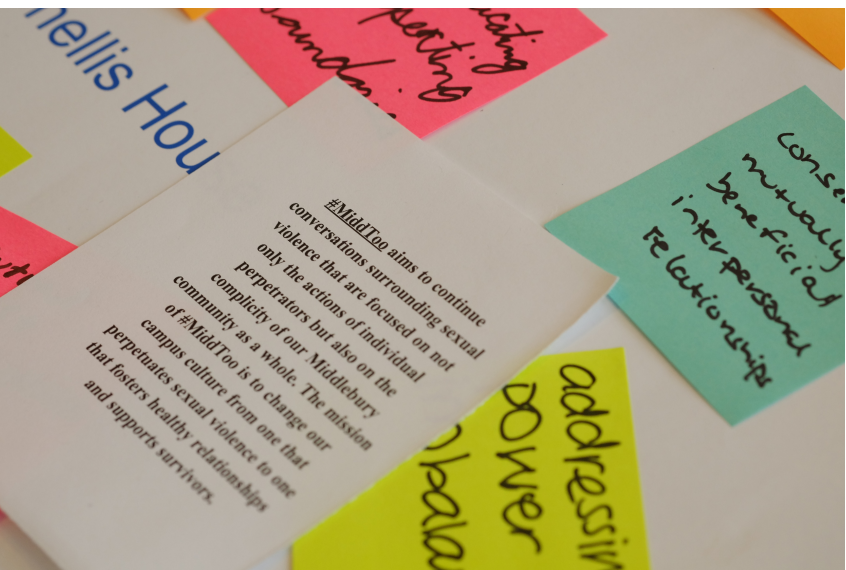 Hou
#MiddToo aims to continue
conversations surrounding sexual
violence that are focused on not
only the actions of individual
perpetrators but also on the
complicity of our Middlebury
community as a whole. The mission
of #MiddToo is to change our
campus culture from one that
perpetuates sexual violence to one
that fosters healthy relationships
and supports survivors.
mutually
beneficial
interpersonal
relationships
addressin
power